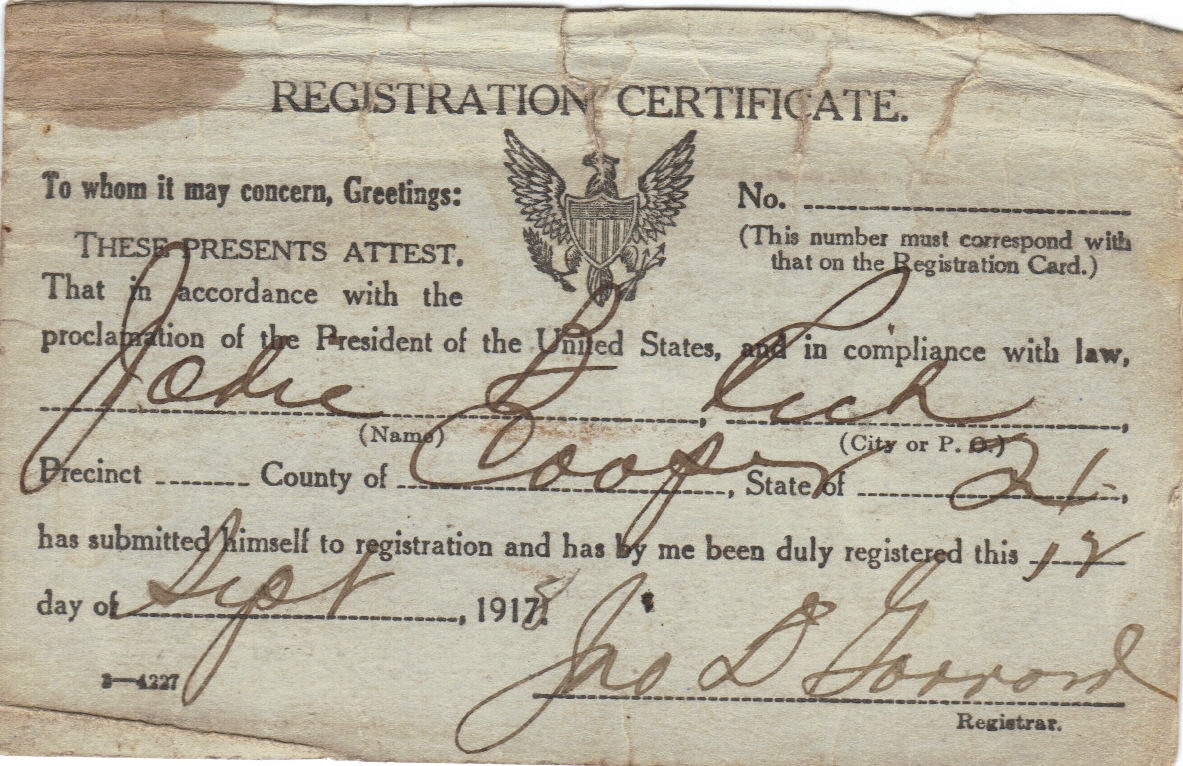 REGISTRATION CERTIFICATE.
To whom it may concern, Greetings:
No.
THESE PRESENTS ATTEST.
(This number must correspond with
that on the Registration Card.)
That in accordance with the
proclamation of the President of the United States, and in compliance with law,
Jodie B Rich
(Name)
(City or P. O.)
Precinct County of Cooper, State of 21,
has submitted himself to registration and has by me been duly registered this 12
day of Sept, 1917
Jno D
Registrar.
3—4227